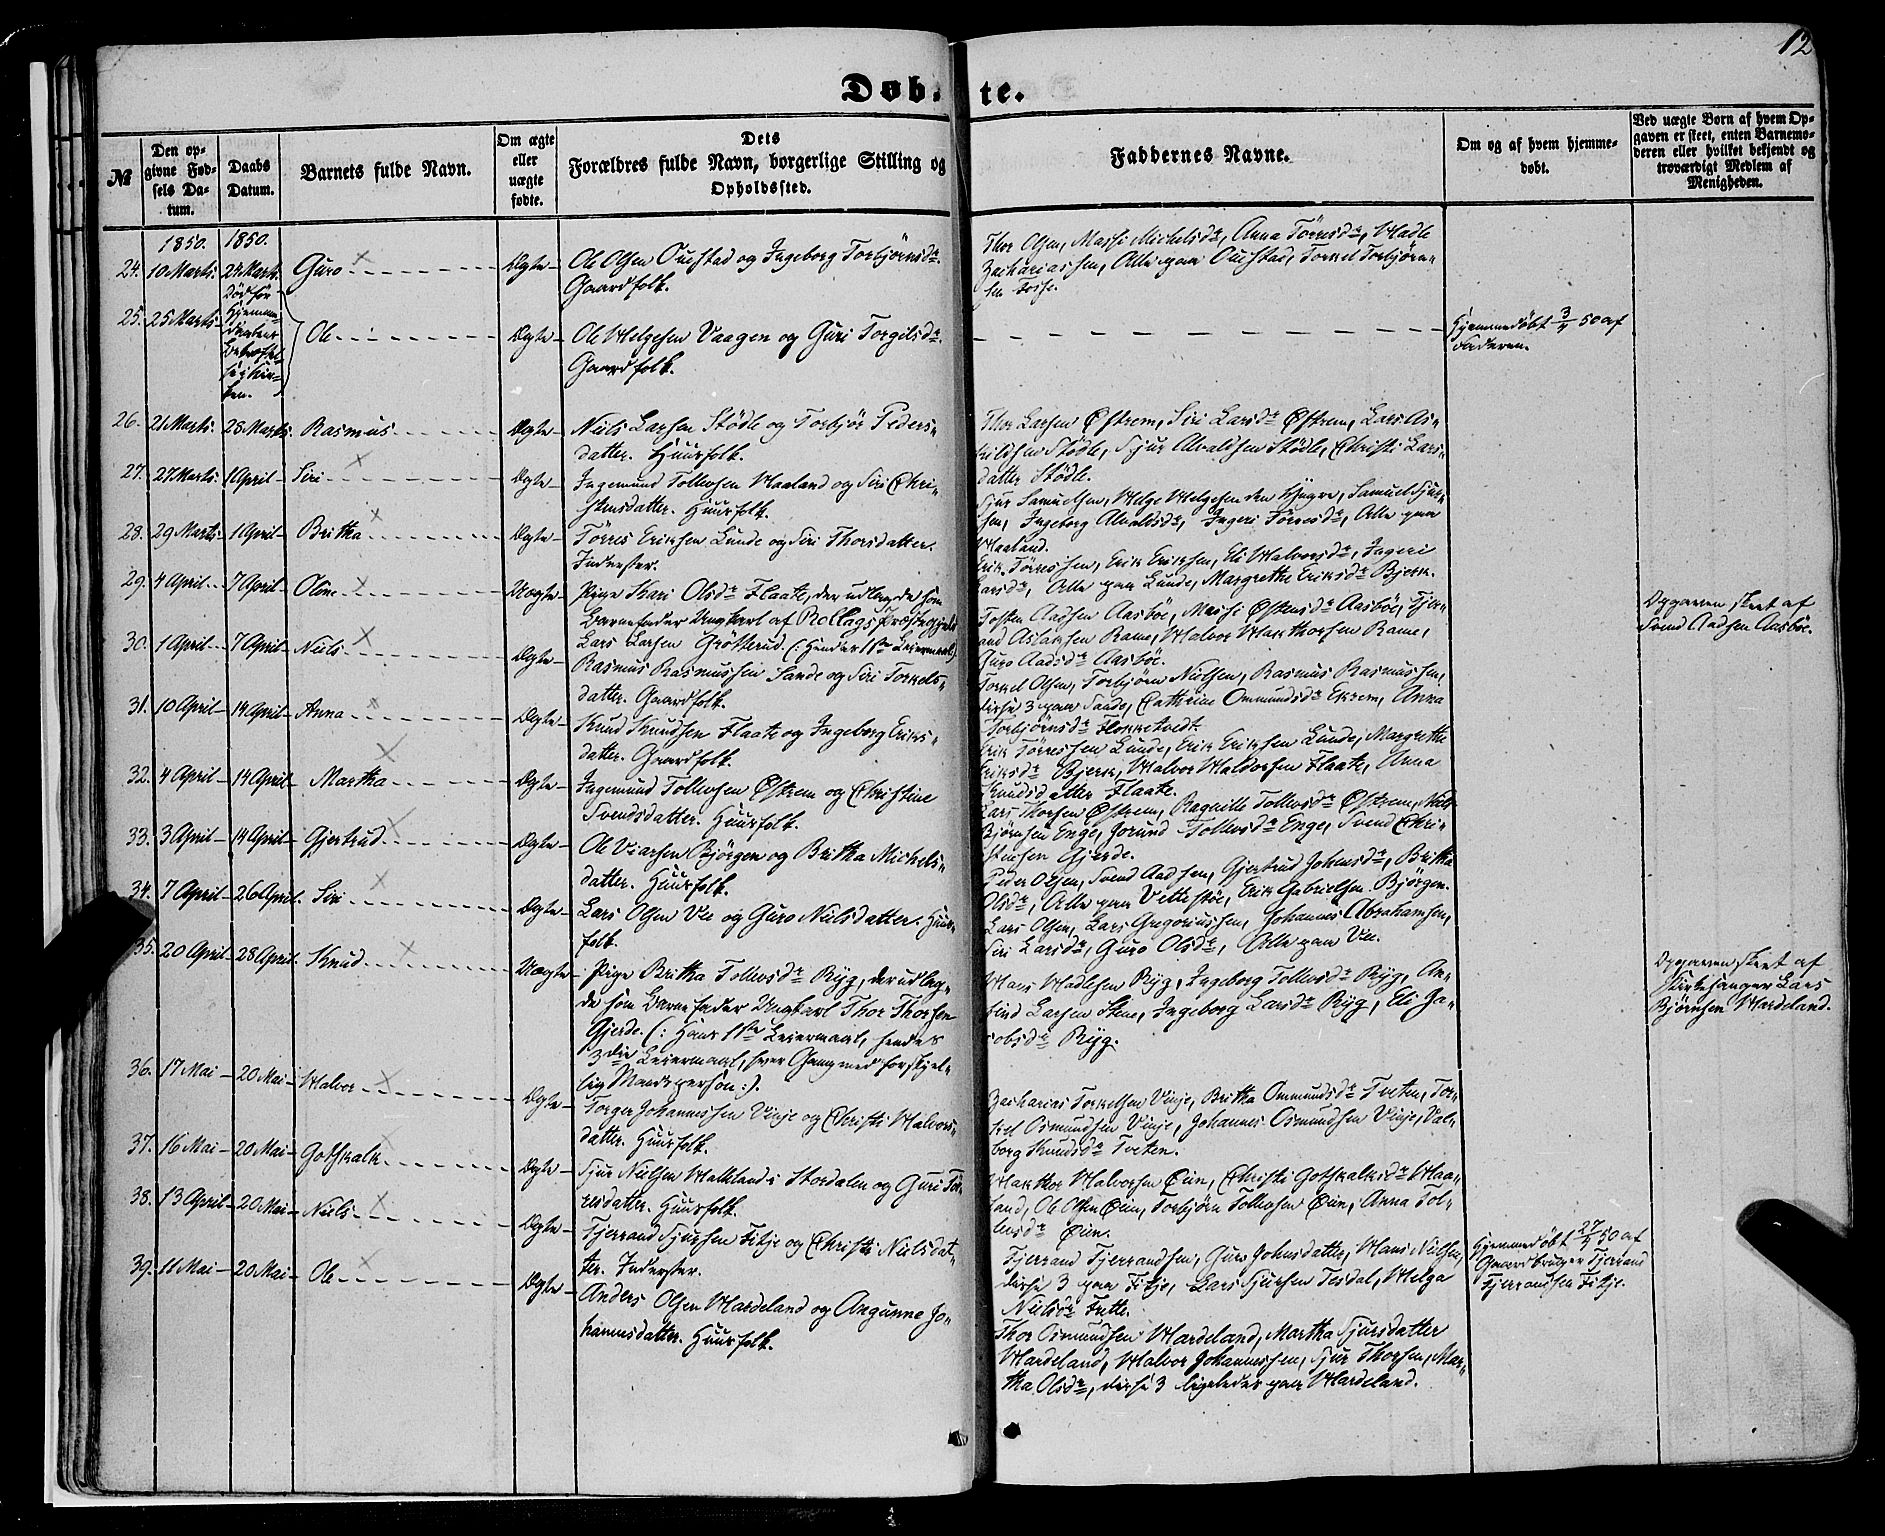 12
Døbte.
№
Den opgivne Fødsels Datum.
Daabs Datum.
Barnets fulde Navn.
Om ægte eller uægte fødte.
Dets Forældres fulde Navn, borgerlige Stilling og Opholdssted.
Faddernes Navne.
Om og af hvem hjemmedøbt.
Ved uægte Børn af hvem Opgaven er skeet, enten Barnemoderen eller hvilket bekjendt og troværdigt Medlem af Menigheden.
1850. 1850.
24. 10 Marts. 24 Marts. Guro Ægte
Ole Olsen Ouestad og Ingeborg Torbjörnsdr.
Gaardfolk.
Thor Olsen, Massi Michelsdr, Anna Törresdr, Madle
Zachariassen, Alle paa Ouestad, Torkel Torbjörn=
sen Fosse.
25. 25 Marts. Död för
Hjemme-
daabens
Bekræftel-
se i Kir-
ken. Ole Ægte
Ole Helgesen Vaagen og Guri Torgilsdr.
Gaardfolk.
Hjemmedöbt 3/4 50 af
Faderen.
26. 21 Marts. 28 Marts. Rasmus Ægte
Niels Larsen Stödle og Torbjör Peders=
datter. Huusfolk.
Thor Larsen Østrem, Siri Larsdr Østrem, Lars As=
kildsen Stödle, Sjur Alvaldsen Stödle, Christi Lars=
datter Stödle.
27. 27 Marts. 1 April Siri Ægte
Ingemund Tollevsen Haaland og Siri Chri=
stensdatter. Huusfolk.
Sjur Samuelsen, Helge Helgesen den Yngre, Samuel Sjur=
sen, Ingeborg Alvaldsdr, Ingeri Törresdr, Alle paa
Haaland.
28. 29 Marts. 1 April Britha Ægte
Törres Eriksen Lunde og Siri Thorsdatter.
Inderster.
Erik Törressen, Erik Eriksen, Eli Halvorsdr, Ingeri
Larsdr, Alle paa Lunde, Margrethe Eriksdr Bjerk.
29. 4 April 7 April Oline Uægte
Pige Kari Olsdr Flaate, der udlagde som
Barnefader Ungkarl af Rollags Præstegjeld
Lars Larsen Grötterud. (: Hendes 1ste Leiermaal)
Tosten Aadsen Aasböe, Massi Østensdr Aasböe, Fjer=
and Aslaksen Rame, Halvor Hakthorsen Rame,
Guro Aadsdr Aasböe.
Opgaven skeet af
Svend Aadsen Aasböe.
30. 1 April 7 April Niels Ægte
Rasmus Rasmussen Sande og Siri Torkels=
datter. Gaardfolk.
Torkel Olsen, Torbjörn Nielsen, Rasmus Rasmussen,
disse 3 paa Sande, Cathrine Ommundsdr Ekrem, Anna
Torbjörnsdr Flokketvedt.
31. 10 April 14 April Anna Ægte
Knud Knudsen Flaate og Ingeborg Eriks=
datter. Gaardfolk.
Erik Törressen Lunde, Erik Eriksen Lunde, Margrethe
Eriksdr Bjerk, Halvor Haldorsen Flaate, Anna
Knudsdatter Flaate.
32. 4 April 14 April Martha Ægte
Ingemund Tollevsen Østrem og Christine
Svendsdatter. Huusfolk.
Lars Thorsen Østrem, Ragnille Tollevsdr Østrem, Niels
Björnsen Enge, Jorund Tollevsdr Enge, Svend Chri=
stensen Gjerde.
33. 3 April 14 April Gjertrud Ægte
Ole Viarsen Björgen og Britha Michels=
datter. Huusfolk.
Peder Olsen, Svend Aadsen, Gjertrud Johnsdr, Britha
Olsdr, Alle paa Vettestöe, Erik Gabrielsen Björgen.
34. 7 April 26 April. Siri Ægte
Lars Olsen Vee og Guro Nielsdatter. Huus=
folk.
Lars Olsen, Lars Gregoriussen, Johannes Abrahamsen,
Siri Larsdr, Guro Olsdr, Alle paa Vee.
35. 20 April 28 April. Knud Uægte
Pige Britha Tollevsdr Ryg, der udlag=
de som Barnefader Ungkarl Thor Thorsen
Gjerde. (: Hans 1ste Leiermaal, hendes
3die Leiermaal, hver Gang med forskjel=
lig Mandsperson :).
Hans Madlesen Ryg, Ingeborg Tollevsdr Ryg, An=
find Larsen Stene, Ingeborg Larsdr Ryg, Eli Ja=
cobsdr Ryg.
Opgaven skeet af
Kirkesanger Lars
Björnsen Hardeland.
36. 17 Mai 20 Mai Halvor Ægte
Torger Johannessen Vinje og Christi Halvors=
datter. Huusfolk.
Zacharias Torkelsen Vinje, Britha Ommundsdr Tveten, Tor=
kel Osmundsen Vinje, Johannes Osmundsen Vinje, Val=
borg Knudsdr Tveten.
37. 16 Mai 20 Mai Gotskalk Ægte
Sjur Nielsen Halleland i Stordalen og Guri Tör=
resdatter. Huusfolk.
Hakthor Halvorsen Øien, Christi Gotskalksdr Haa=
land, Ole Olsen Øien, Torbjörn Tollevsen Øien, Anna Tol=
levsdr Øien.
38. 13 April 20 Mai Niels Ægte
Fjerrand Sjursen Fitje og Christi Nielsdat=
ter. Inderster.
Fjerrand Fjerrandsen, Guro Johnsdatter, Hans Nielsen,
disse 3 paa Fitje, Lars Sjursen Tesdal, Helga
Nielsdr Fette.
Hjemmedöbt 27/4 50 af
Gaardbruger Fjerrand
Fjerrandsen Fitje.
39. 11 Mai 20 Mai Ole Ægte
Anders Olsen Hardeland og Angunne Jo=
hannesdatter. Huusfolk.
Thor Osmundsen Hardeland, Martha Sjursdatter
Hardeland, Halvor Johannessen, Sjur Thorsen, Mar=
tha Olsdr, disse 3 ligeledes paa Hardeland.